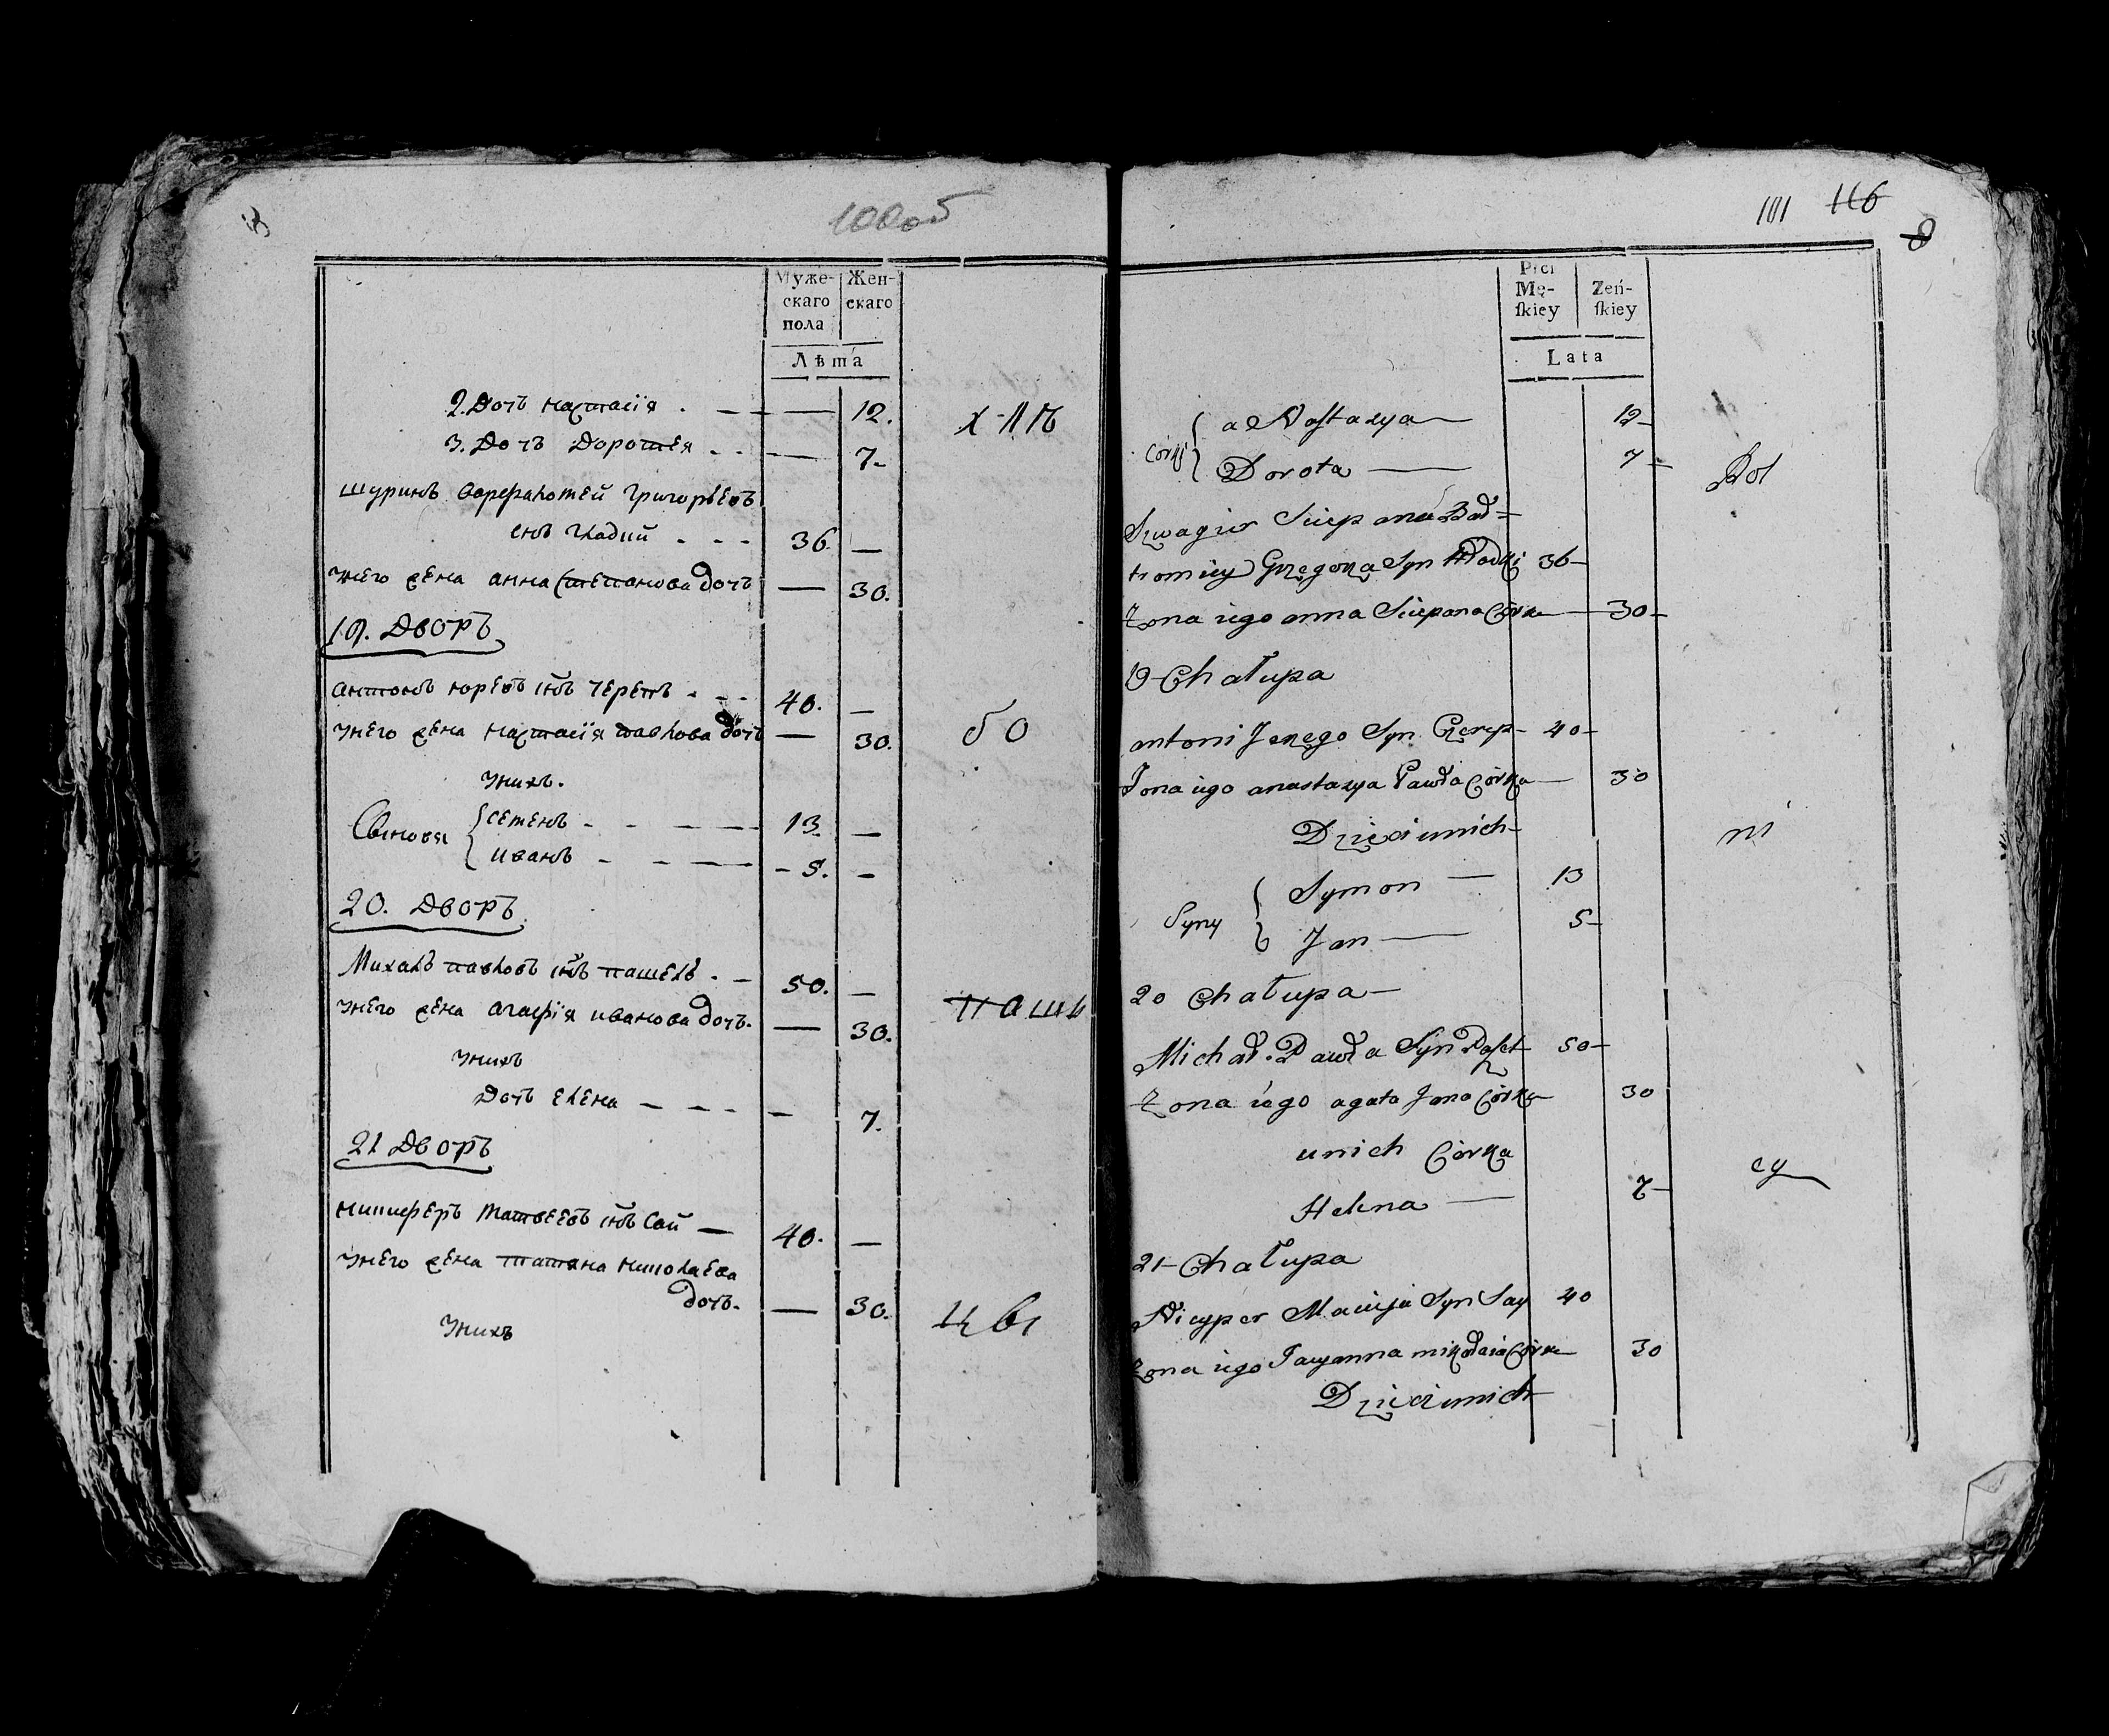 100об
Муже-
скаго
пола
Жен-
скаго
Лѣта
2. Дочь Настасїя . — — 12.
3. Дочь Доротея . . — 7.
шуринъ Варфаломей Григорьевъ
снъ Гладкий . - - 36. —
Унего жена анна Степанова дочь — 30.
19. Дворъ
антонъ юревъ снъ Черепъ . - - 40. —
Унего жена Настасїя павлова дочь — 30.
Унихъ.
Сыновья { Семенъ - - — — 13. —
иванъ - - — — - 5. —
20. Дворъ
Михалъ павловъ снъ пашелъ . - 50. —
Унего жена агафїя иванова дочь. — 30.
Унихъ
Дочь елена — - - - — 7.
21 Дворъ
Ничиферъ матвеевъ снъ Сай — 40. —
Унего жена татяна николаева
дочь. — 30.
Унихъ
бо
паши
101 116
8
Płci
Mę-
skiey
Zeń-
skiey
Lata
Corki { a Nastazya — 12-
Dorota — 7-
Szwagier Sciepana Bad-
tromiey Grzegorza Syn Hładki 36-
Zona iego anna Sciepana Córka — 30-
19 Chałupa
antoni Jerzego Syn Czerep- 40-
Zona iego anastazya Pawła Córka — 30
Dzieci unich-
Syny { Symon — 13
Jan — 5-
20 Chałupa-
Michał Pawła Syn Paszel 50-
Zona iego agata Jana Córka 30
unich Córka
Helena — 7-
21- Chałupa
Niczyper Macieja Syn Say 40
Zona iego Tacyanna mikołaia Córka 30
Dzieci unich